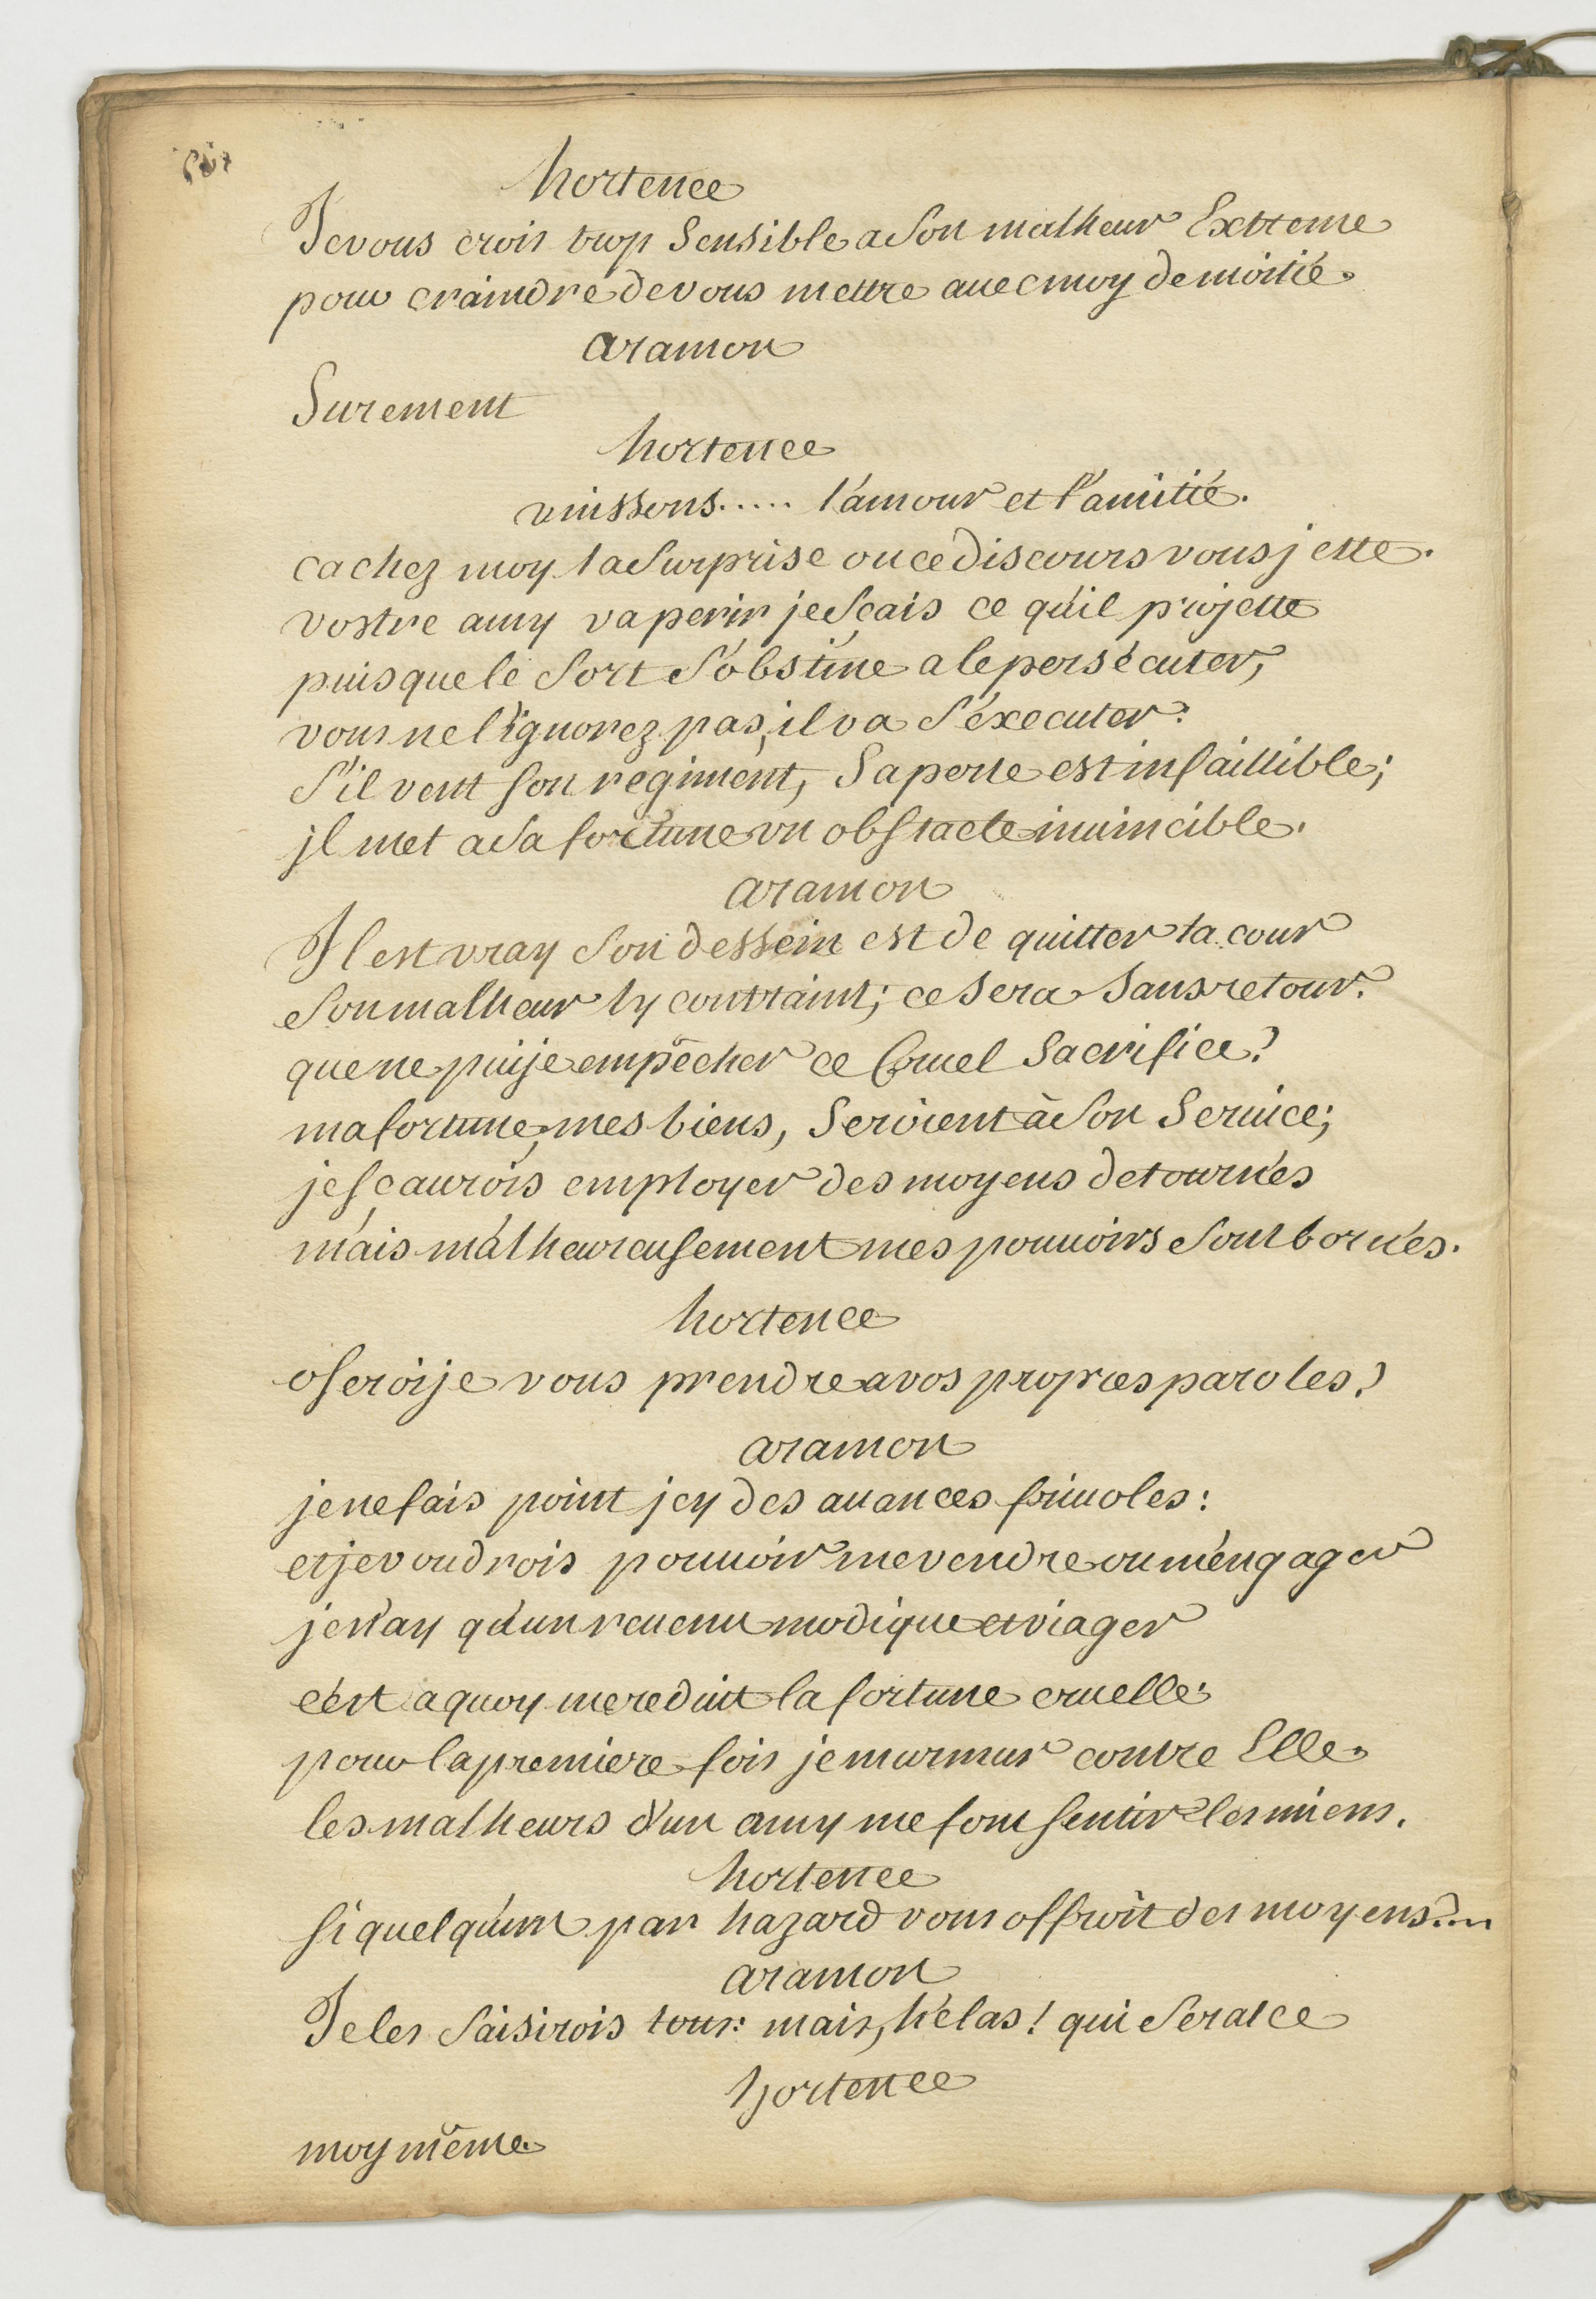 hortence
Je vous crois trop sensible a son malheur Extreme
pour craindre de vous mettre avec moy de moitié.
aramon
Surement
hortence
unissons..... l'amour et l'amitié.
cachez moy la surprise ou ce discours vous jette.
vostre amy va perir je sçais ce qu'il projette
puisque le sort s'obstine a le persécuter,
vous ne l'ignorez pas, il va s'éxecuter:
s'il vent son regiment, sa perte est infaillible;
jl met a sa fortune un obstacle inuincible.
aramon
Il est vray son dessein est de quitter la cour
son malheur ly contraint; ce sera sans retour.
que ne puije empêcher ce Cruel sacrifice?
ma fortune, mes biens, seroient à son seruice;
je sçaurois employer des moyens detournés
mais malheureusement mes pouuoirs sont bornés.
hortence
oseroije vous prendre a vos propres paroles?
aramon
je ne fais point jcy des auances friuoles:
et je voudrois pouuoir me vendre ou m'engager
je n'ay qu'un reuenu modique et viager
c'est a quoy me reduit la fortune cruelle;
pour la premiere fois je murmur contre Elle.
les malheurs d'un amy me font sentir les miens.
hortence
si quelqu'un par hazard vous offroit des moyens....
aramon
Je les saisirois tous: mais, hélas! qui sera ce
hortence
moy même.